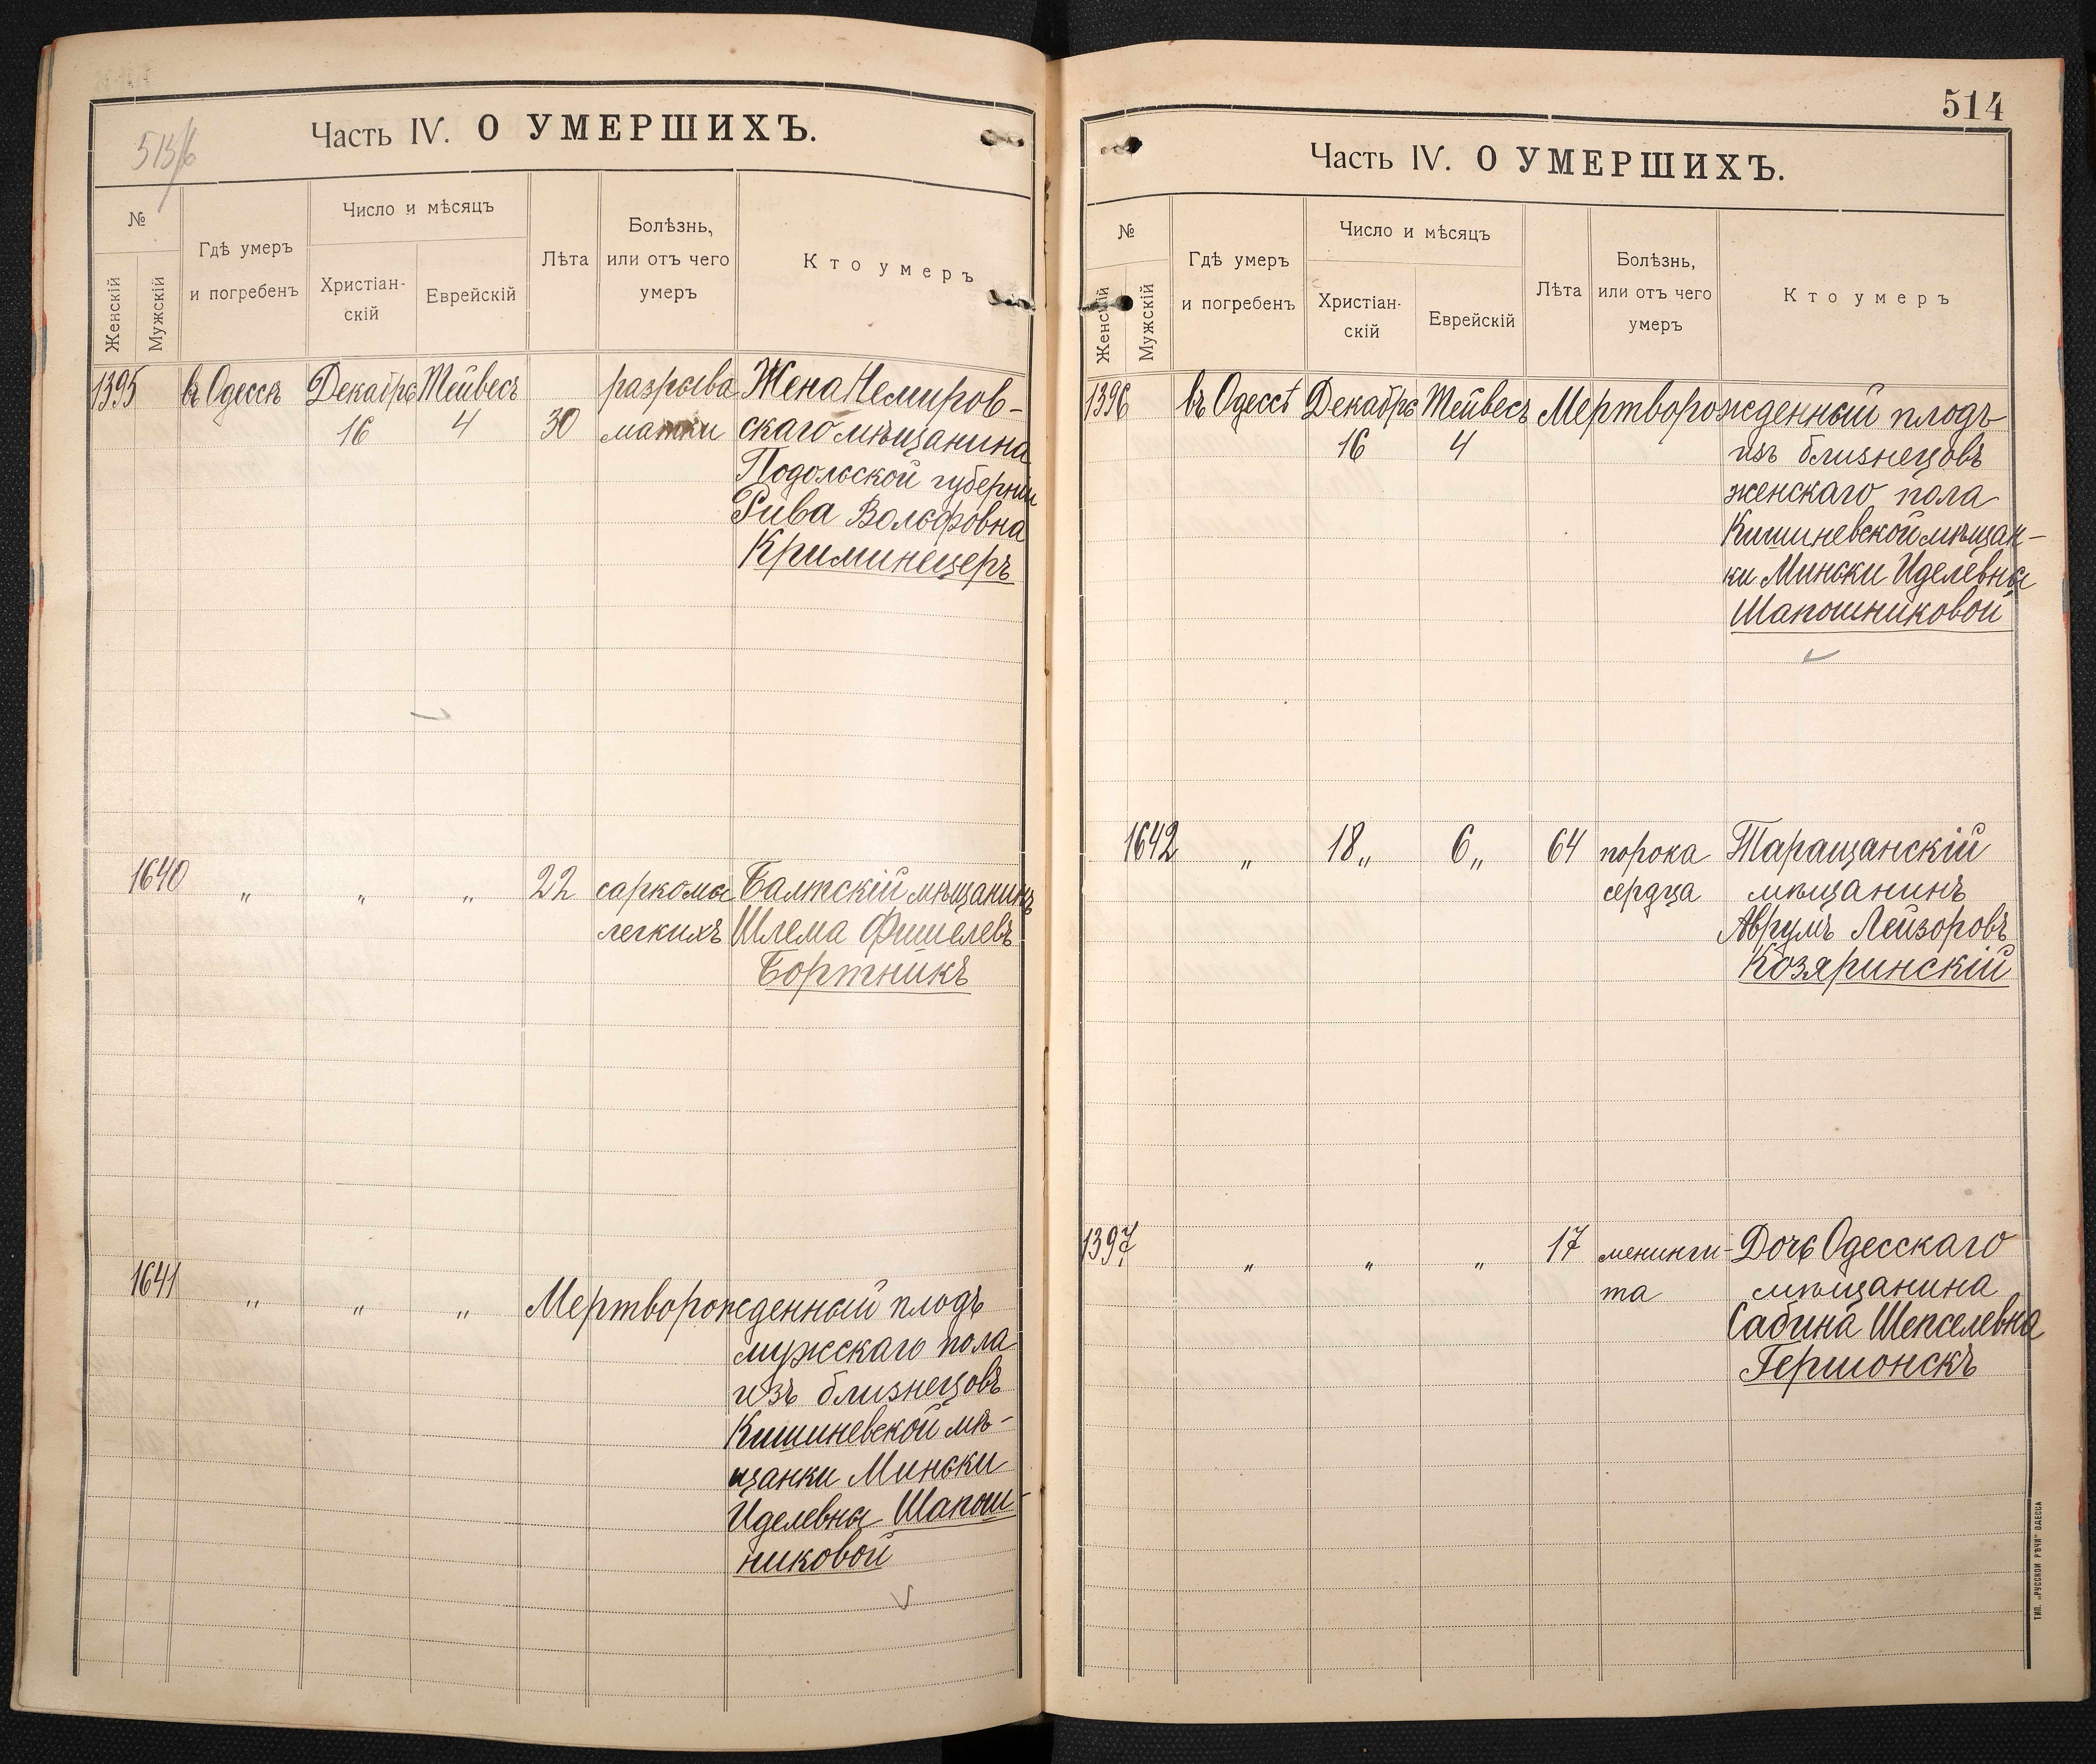 513/б
Часть IV. О УМЕРШИХЪ.
№
Женскій
Мужскій
Гдѣ умеръ
и погребенъ
Число и мѣсяцъ
Христіан-
скій
Еврейскій
Лѣта
Болѣзнь,
или отъ чего
умеръ
Кто умеръ
1395 въ Одессѣ Декабрь Тейвесъ разрыва Жена Немиров-
16 4 30 матки скаго мѣщанина
Подольской губерніи
Рива Вольфовна
Криминецеръ
1640 " " " 22 саркомы Балтскій мѣщанинъ
легкихъ Шлема Фишелевъ
Бортникъ
1641 " " " Мертворожденный плодъ
мужскаго пола
изъ близнецовъ
Кишиневской мѣ-
щанки Миньки
Иделевны Шапош-
никовой
514
Часть IV. О УМЕРШИХЪ.
№
Женскій
Мужскій
Гдѣ умеръ
и погребенъ
Число и мѣсяцъ
Христіан-
скій
Еврейскій
Лѣта
Болѣзнь,
или отъ чего
умеръ
Кто умеръ
1396 въ Одессѣ Декабрь Тейвесъ Мертворожденный плодъ
16 4 изъ близнецовъ
женскаго пола
Кишиневской мѣщан-
ки Миньки Иделевны
Шапошниковой
1642 " 18 " 6 " 64 порока Таращанскій
сердца мѣщанинъ
Аврумъ Лейзоровъ
Козяринскій
1397 " " " 17 менинги- Дочь Одесскаго
та мѣщанина
Сабина Шепселевна
Гершонскъ
ТИП. „РУССКОЙ РѢЧИ" ОДЕССА